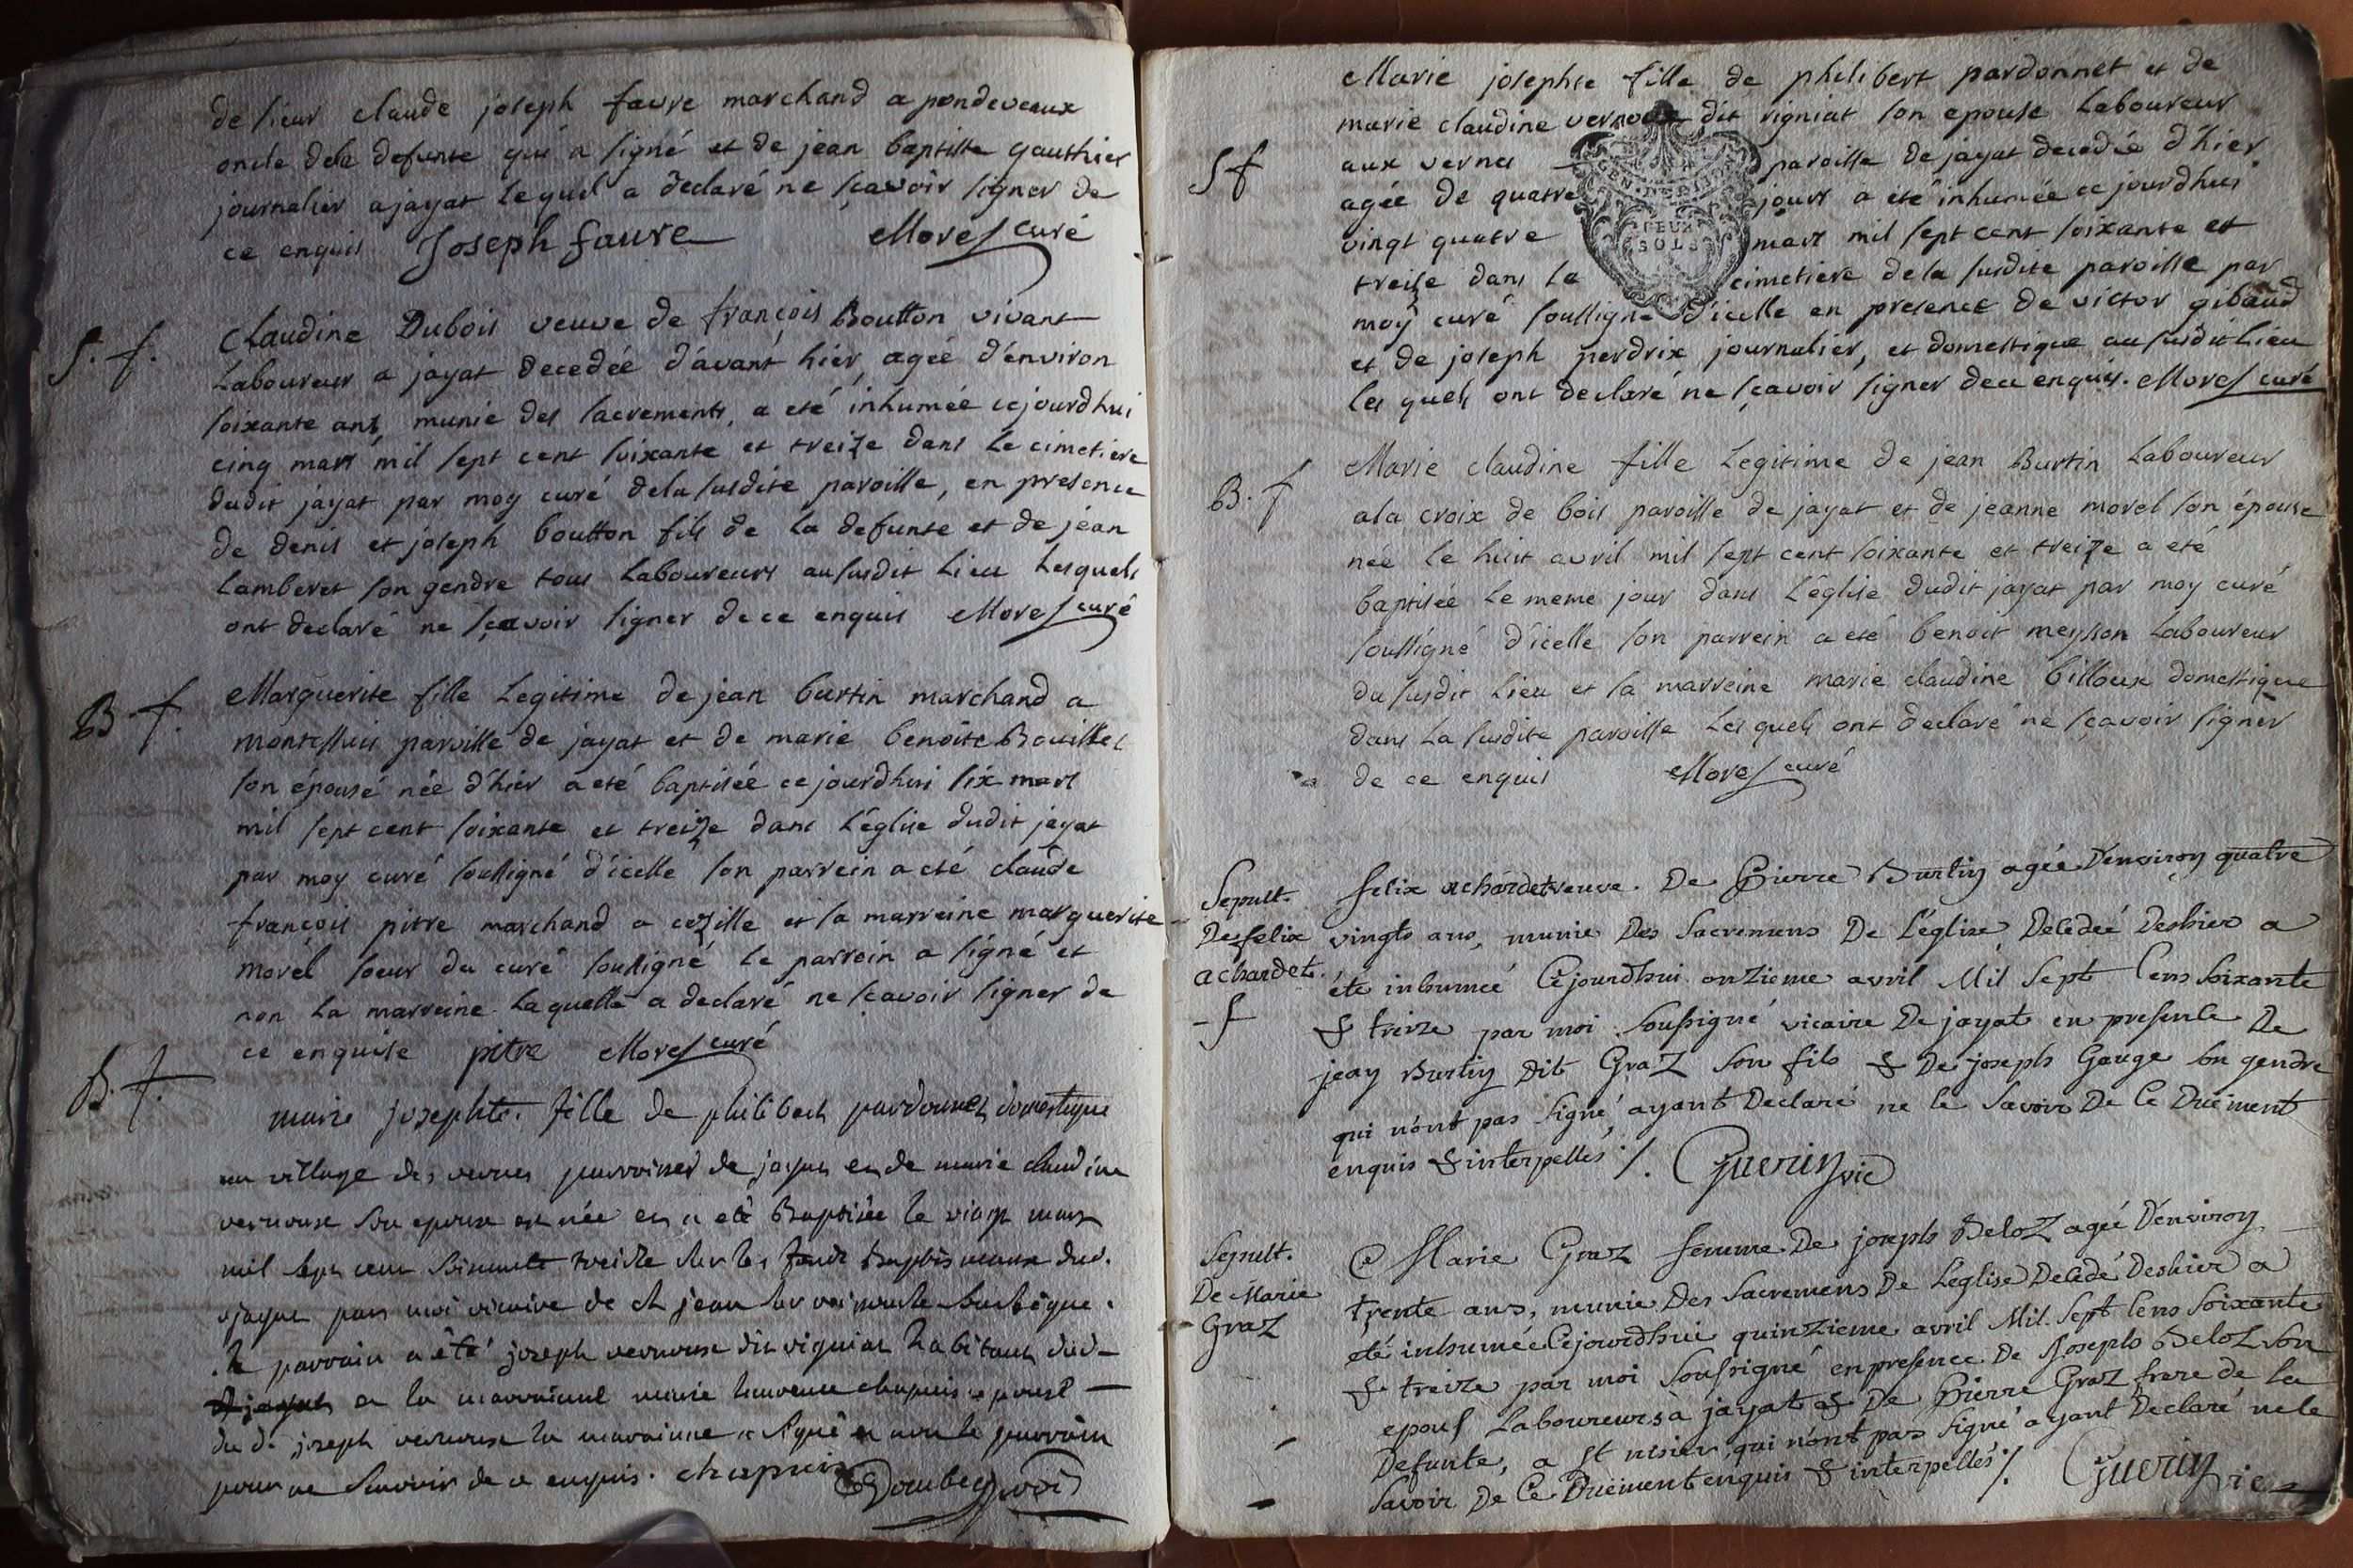 de sieur claude joseph favre marchand a pondeveaux
oncle dela defunte qui a signé et de jean baptiste gauthier
journalier a jayat lequel a declaré ne sçavoir signer de
ce enquis Joseph faure Morel curé
S. f.
Claudine Dubois veuve de françois Boutton vivant
Laboureur a jayat decedée d'avant hier, agée d'environ
soixante ans munie des sacrements, a eté inhumée cejourdhui
cinq mars mil sept cent soixante et treize dans le cimetiere
dudit jayat par moy curé dela susdite paroisse, en presence
de denis et joseph boutton fils de la defunte et de jean
Lamberet son gendre tous Laboureurs au susdit Lieu Lesquels
ont declaré ne sçavoir signer de ce enquis Morel curé
B. f.
Marguerite fille Legitime de jean burtin marchand a
montessuis paroisse de jayat et de marie benoite Bouillet
son épouse née d'hier a eté baptisée ce jourdhui six mars
mil sept cent soixante et treize dans L'église dudit jayat
par moy curé soussigné d'icelle son parrein a eté claude
françois pitre marchand a cezille et la marreine marguerite
morel soeur du curé soussigné Le parrein a signé et
non La marreine Laquelle a declaré ne sçavoir signer de
ce enquise pitre Morel curé
B. f.
marie josephte fille de philibert pardonnet domestique
au village des vernes parroisse de jayat et de marie claudine
vernoux son epouse est née et a eté Baptisée le vingt mars
mil sept cent soixante treize sur les fonds Baptismaux dud.
jayat par moi vicaire de st jean sur
le parrain a été joseph vernoux dit vigniat habitant dud
jayat et la marrainne marie chapuis epouse
du dt joseph vernoux la marainne a signé et non le parrain
pour ne savoir de ce enquis. chapuis
Marie josephte fille de philibert pardonnet et de
marie claudine vernoux dit vigniat son epouse Laboureur
S f
aux vernes paroisse de jayat decedée d'hier
agée de quatre jours a eté inhumée ce jourdhui
vingt quatre mars mil sept cent soixante et
treize dans le cimetiere dela susdite paroisse par
DEUX
SOLS
moy curé soussigné d'icelle en presence de victor gibaud
et de joseph perdrix journalier, et domestique au susdit Lieu
les quels ont declaré ne sçavoir signer dece enquis. Morel curé
B. f
Marie claudine fille Legitime de jean Burtin Laboureur
ala croix de bois paroisse de jayat et de jeanne morel son épouse
née le huit avril mil sept cent soixante et treize a eté
baptisée Le meme jour dans L'église dudit jayat par moy curé
soussigné d'icelle son parrein a eté benoit meysson Laboureur
du susdit Lieu et sa marreine marie claudine billoux domestique
dans La susdite paroisse Lesquels ont declaré ne sçavoir signer
de ce enquis Morel curé
Sepult.
De felix
achardet.
f
felix achardet veuve. De Pierre Burtin agée D'environ quatre
vingts ans, munie Des Sacremens De L'église, Decedeé Deshier a
été inhumeé Cejourdhui onzieme avril Mil Sept Cens Soixante
& treize par moi Soussigné vicaire De jayat en presence De
jean Burtin Dit Graz Son fils & De joseph Gauge Son gendre
qui n'ont pas Signé, ayant Declaré ne le Savoir De Ce Duëment
enquis & interpellés ./. Guerin vic
Sepult.
De Marie
Graz
Marie Graz femme De joseph Beloz agée D'environ
trente ans, munie Des Sacremens De L'église Decedé Deshier a
eté inhumée Cejourdhui quinzieme avril Mil. Sept Cens Soixante
& treize par moi Soussigné en presence De Joseph Beloz Son
epous Laboureurs à jayat & De Pierre Graz frere de la
Defunte, a St nisier qui n'ont pas Signé ayant Declaré ne le
Savoir De Ce Duëment enquis & interpellés ./. Guerin vic